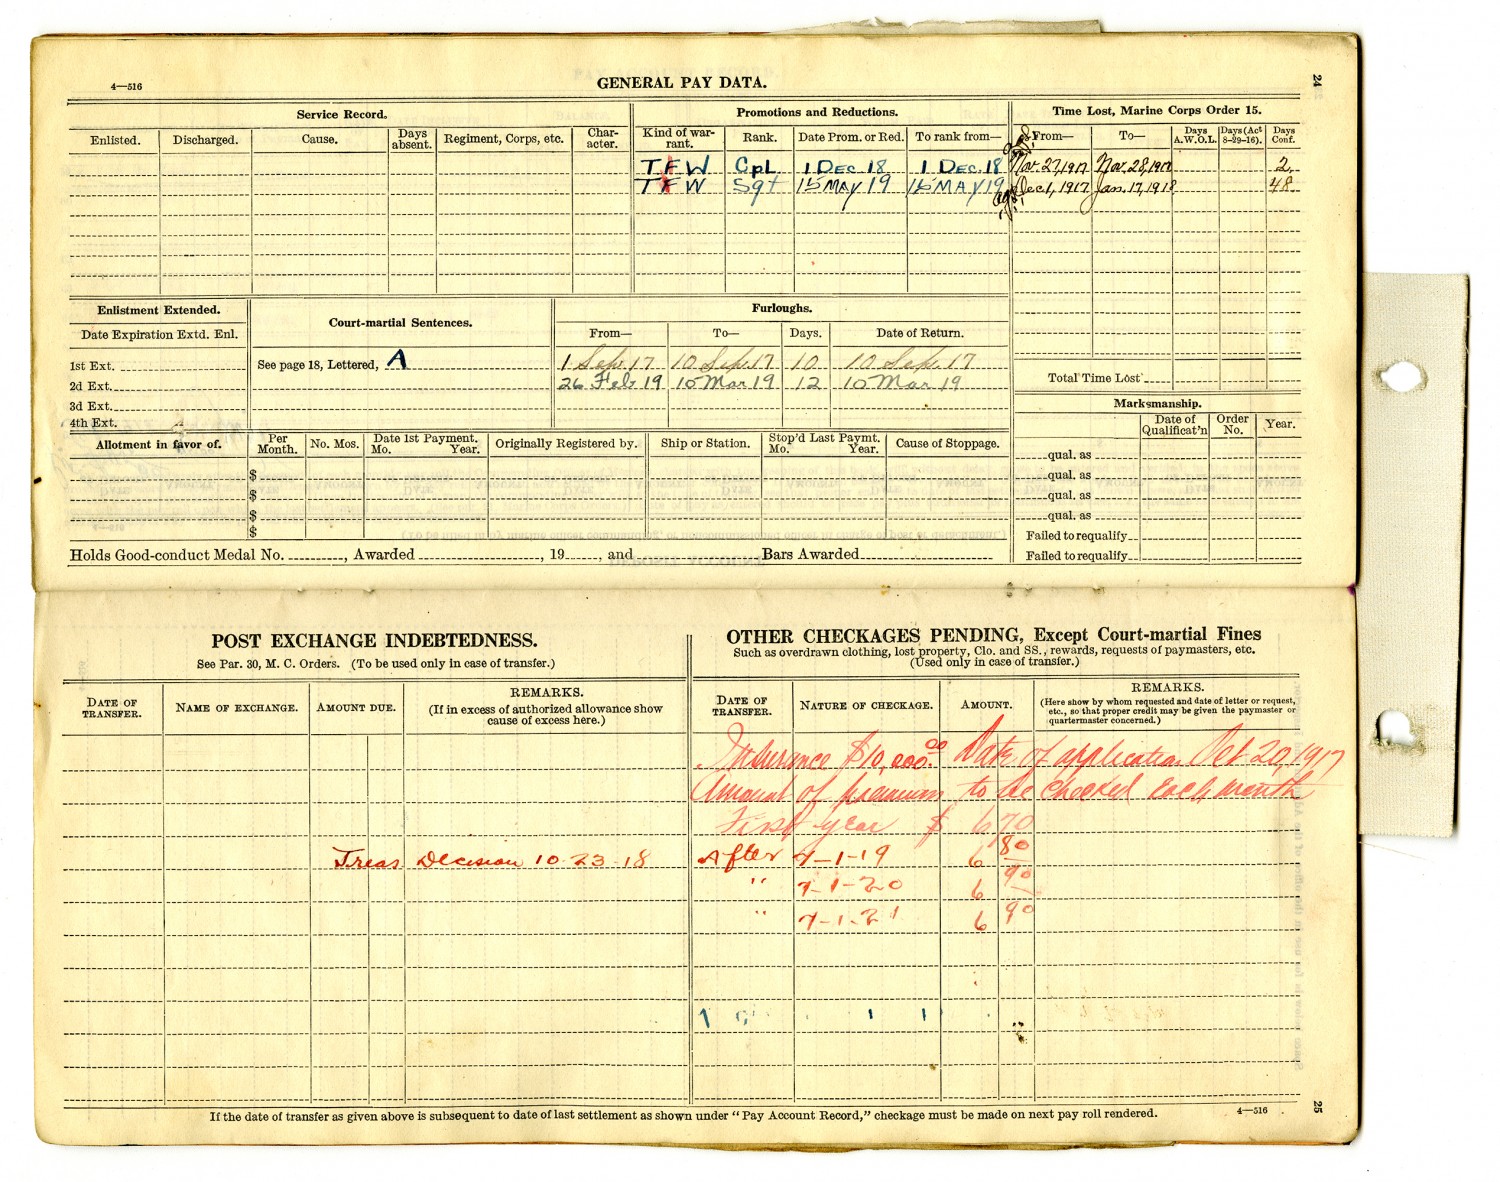 4—516
GENERAL PAY DATA.
24
Service Record.
Promotions and Reductions.
Time Lost, Marine Corps Order 15.
Enlisted. Discharged. Cause. Days absent. Regiment, Corps, etc. Character.
Kind of warrant. Rank. Date Prom. or Red. To rank from—
From— To— Days A.W.O.L. Days (Act 8-29-16). Days Conf.
TFW CpL 1 DEC 18 1 DEC. 18 Nov. 27, 1917 Nov. 28, 1917 2
TFW Sgt 15 MAY 19 15 MAY 19 Dec 1, 1917 Jan. 17, 1918 48
Enlistment Extended.
Date Expiration Extd. Enl.
1st Ext.
2d Ext.
3d Ext.
4th Ext.
Court-martial Sentences.
See page 18, Lettered, A
Furloughs.
From— To— Days. Date of Return.
1 Sep. 17 10 Sep. 17 10 10 Sep. 17
26 Feb 19 10 Mar 19 12 10 Mar 19
Total Time Lost
Marksmanship.
Date of Qualificat'n Order No. Year.
qual. as
qual. as
qual. as
qual. as
Failed to requalify
Failed to requalify
Allotment in favor of. Per Month. No. Mos. Date 1st Payment. Mo. Year. Originally Registered by. Ship or Station. Stop'd Last Paymt. Mo. Year. Cause of Stoppage.
$
$
$
$
Holds Good-conduct Medal No. , Awarded , 19 , and Bars Awarded
POST EXCHANGE INDEBTEDNESS.
See Par. 30, M. C. Orders. (To be used only in case of transfer.)
DATE OF TRANSFER. NAME OF EXCHANGE. AMOUNT DUE. REMARKS.
(If in excess of authorized allowance show cause of excess here.)
Treas Decision 10-23-18
OTHER CHECKAGES PENDING, Except Court-martial Fines
Such as overdrawn clothing, lost property, Clo. and SS., rewards, requests of paymasters, etc.
(Used only in case of transfer.)
DATE OF TRANSFER. NATURE OF CHECKAGE. AMOUNT. REMARKS.
(Here show by whom requested and date of letter or request, etc., so that proper credit may be given the paymaster or quartermaster concerned.)
Insurance $10,000.00 Date of application Oct 20, 1917
Amount of premium to be checked each month
First year $ 6 70
After 7-1-19 6 80
" 7-1-20 6 90
" 7-1-21 6 90
If the date of transfer as given above is subsequent to date of last settlement as shown under "Pay Account Record," checkage must be made on next pay roll rendered.
4—516
25